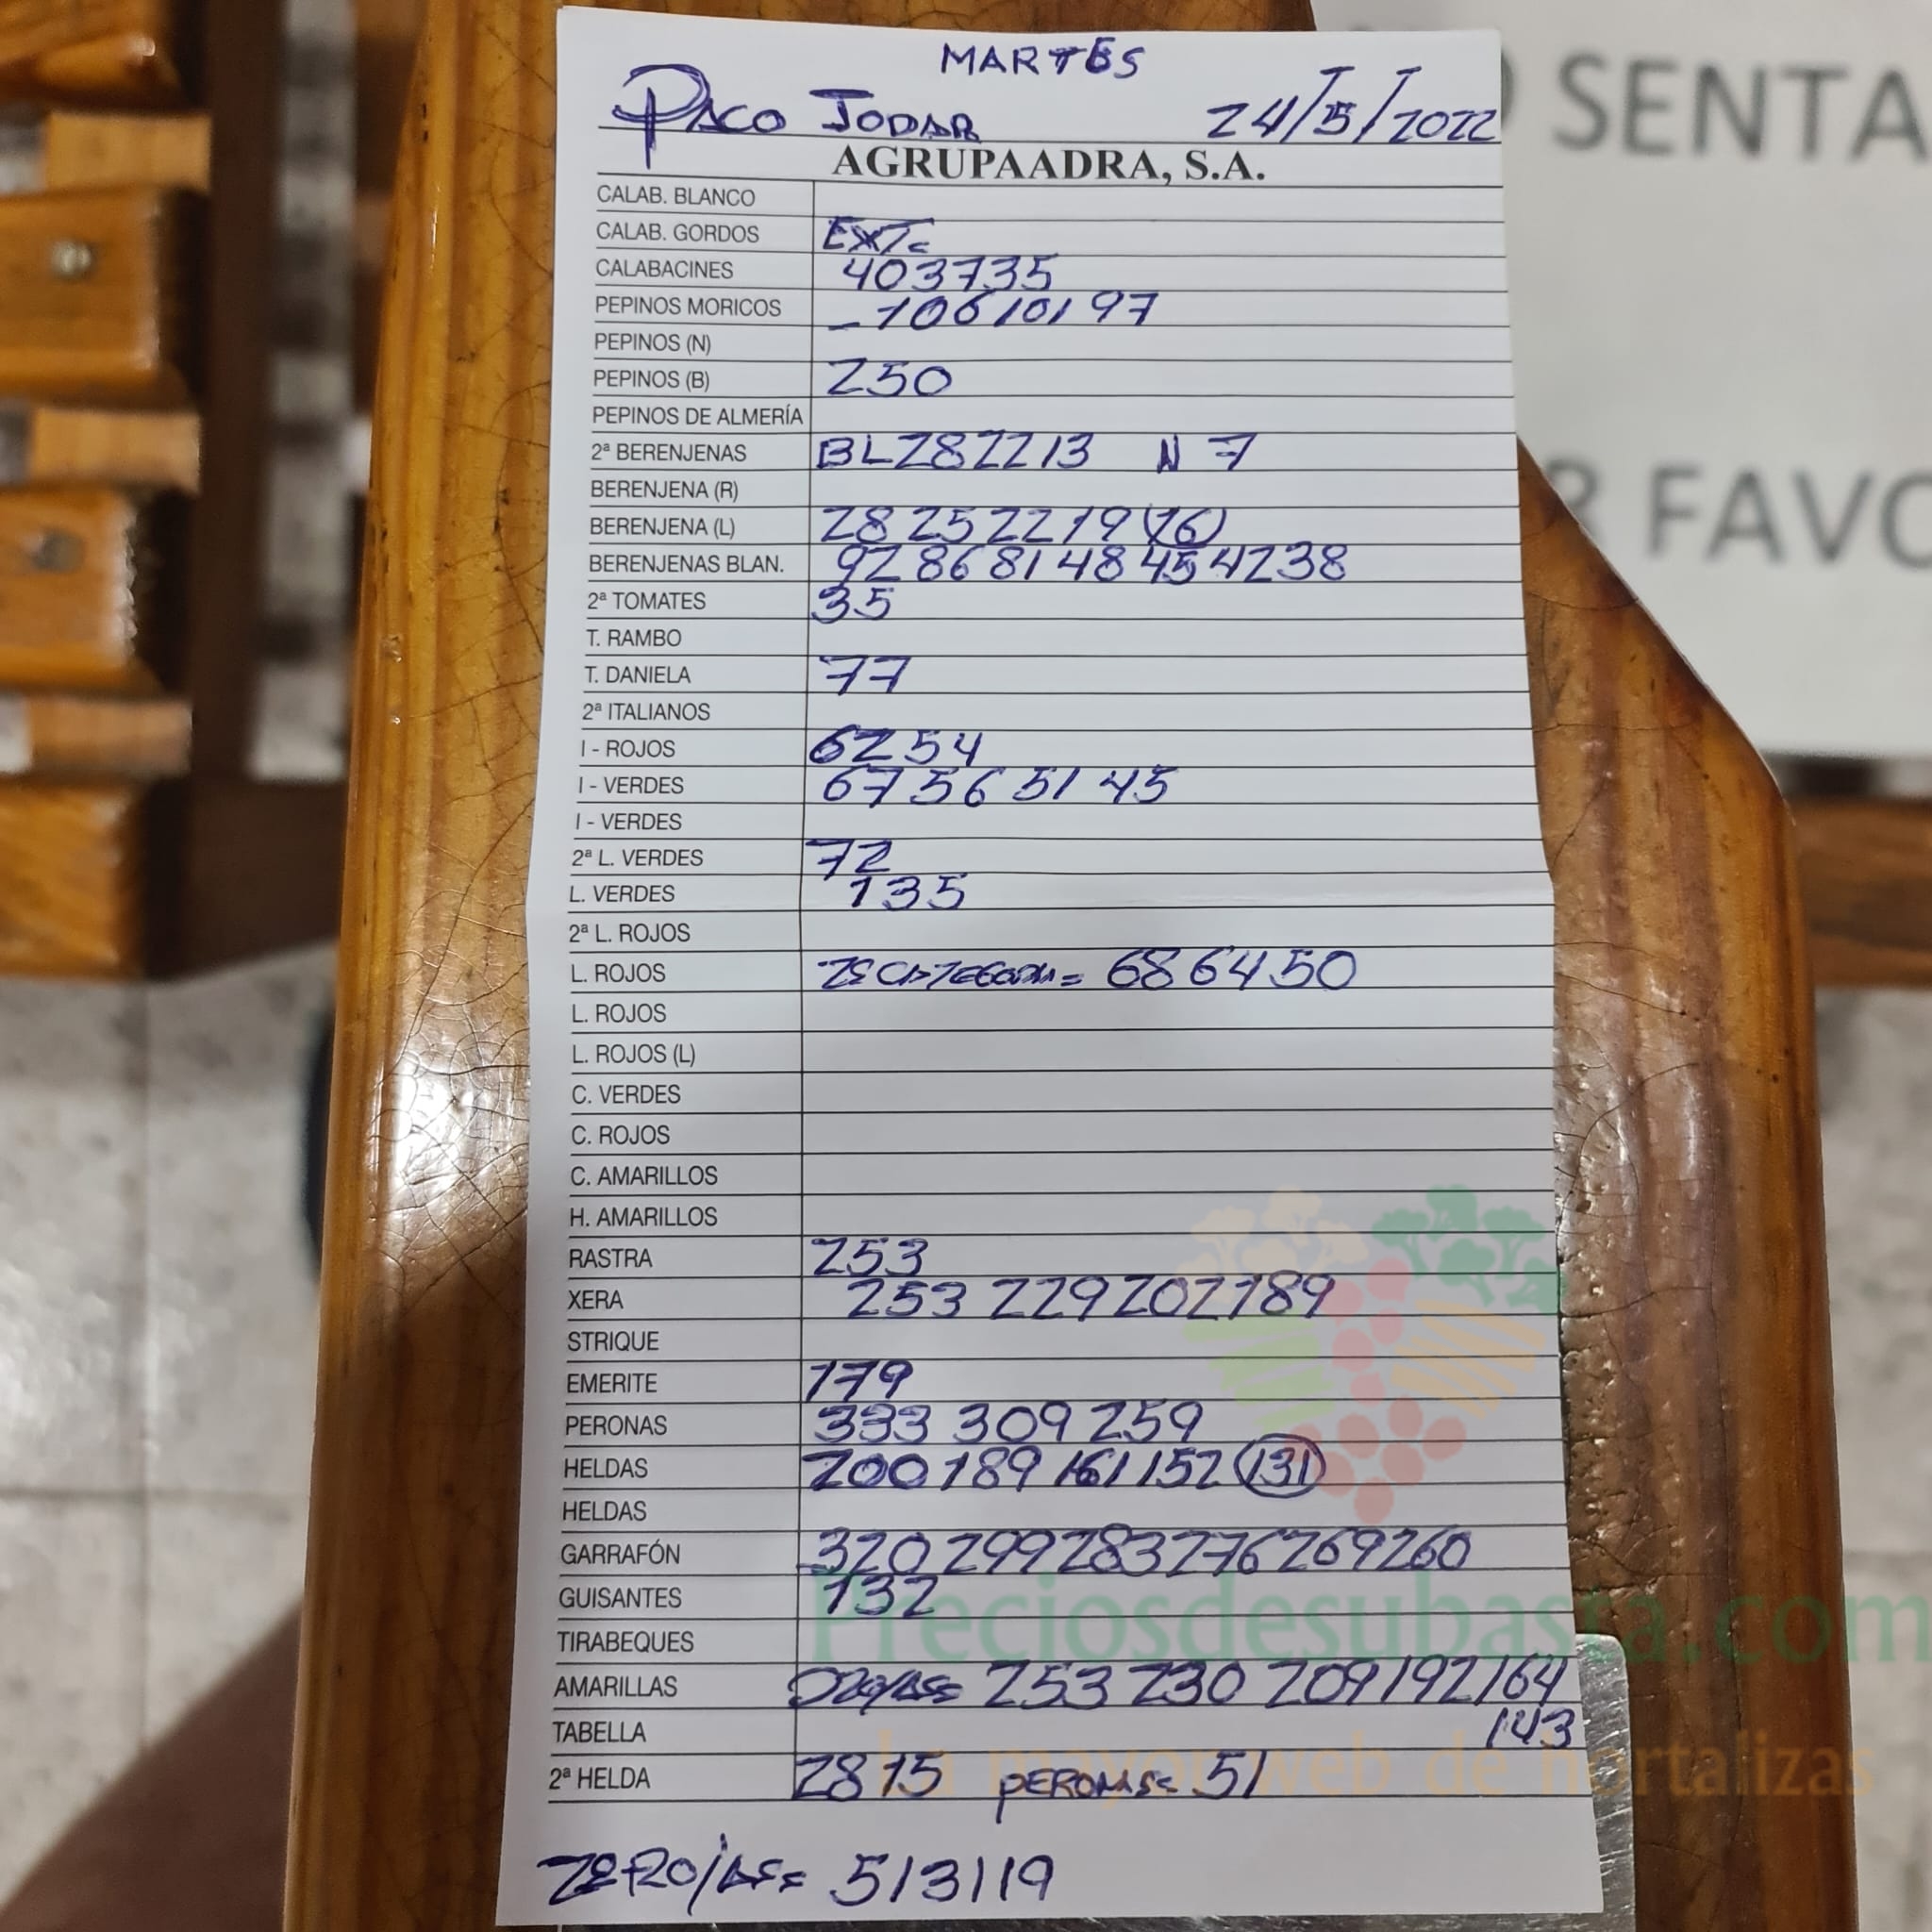 MARTES
PACO JODAR 24/5/2022
AGRUPAADRA, S.A.
CALAB. BLANCO
CALAB. GORDOS EXT=
CALABACINES 40 37 35
PEPINOS MORICOS - 106 101 97
PEPINOS (N)
PEPINOS (B) 250
PEPINOS DE ALMERÍA
2ª BERENJENAS BL 28 22 13 N 7
BERENJENA (R)
BERENJENA (L) 28 25 22 19 (16)
BERENJENAS BLAN. 92 86 81 48 45 42 38
2ª TOMATES 35
T. RAMBO
T. DANIELA 77
2ª ITALIANOS
I - ROJOS 62 54
I - VERDES 67 56 51 45
I - VERDES
2ª L. VERDES 72
L. VERDES 135
2ª L. ROJOS
L. ROJOS 68 64 50
L. ROJOS
L. ROJOS (L)
C. VERDES
C. ROJOS
C. AMARILLOS
H. AMARILLOS
RASTRA 253
XERA 253 229 202 189
STRIQUE
EMERITE 179
PERONAS 333 309 259
HELDAS 200 189 161 152 (131)
HELDAS
GARRAFÓN 320 299 283 276 269 260
GUISANTES 132
TIRABEQUES
AMARILLAS 253 230 209 192 164
TABELLA 143
2ª HELDA 28 15 PERONAS= 51
51 31 19
SENTA
R FAVO
Preciosdesubasta.com
La mayor web de hortalizas